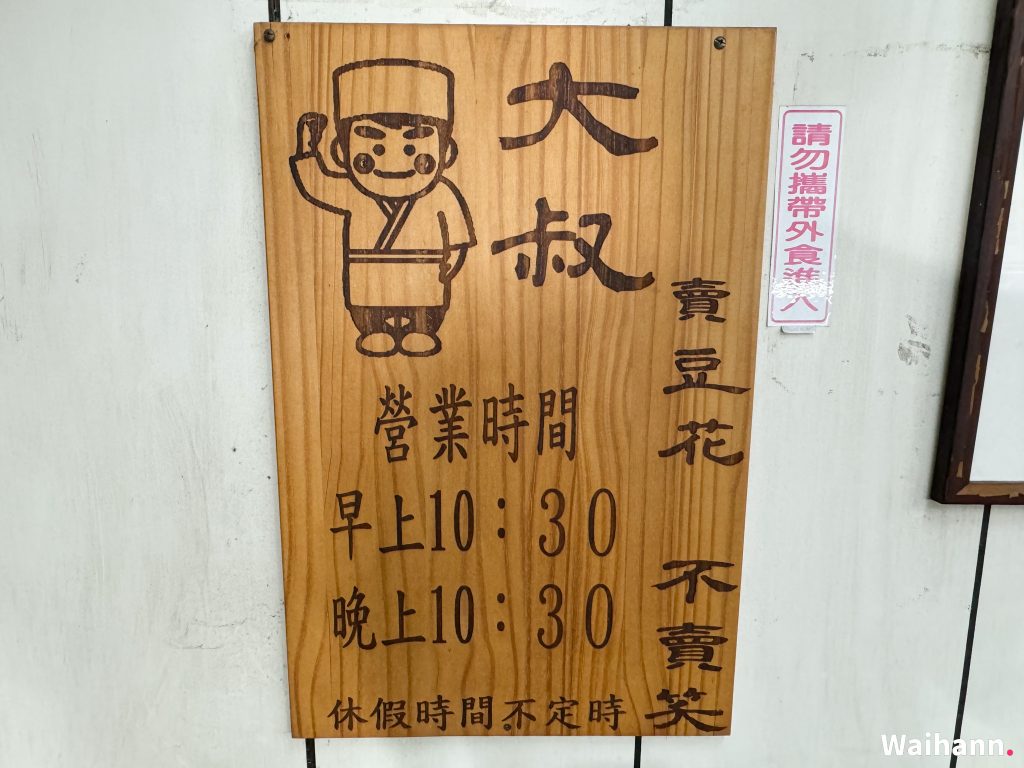 大叔
賣豆花 不賣笑
營業時間
早上10：30
晚上10：30
休假時間不定時
請勿攜帶外食進入
Waihann.